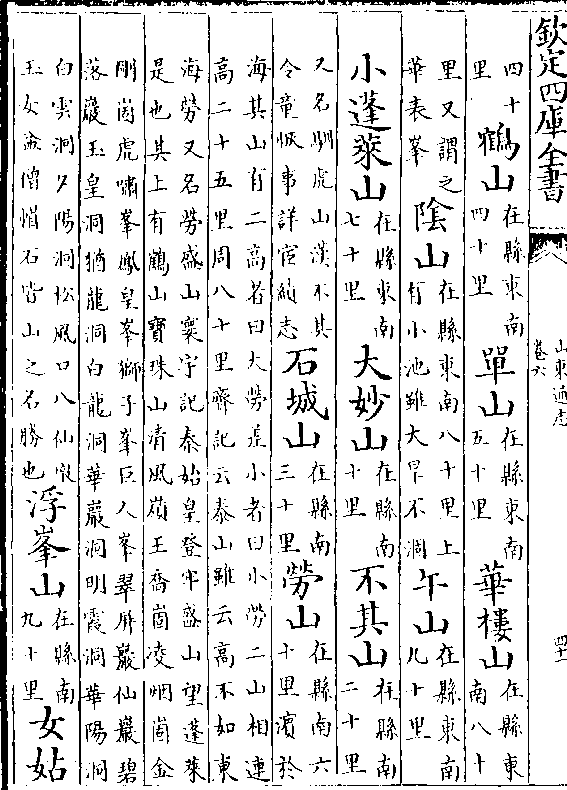 欽定四庫全書
山東通志
卷六
四十一
四十里鶴山在縣東南四十里單山在縣東南五十里華樓山在縣東南八十
里又謂之華表峯陰山在縣東南八十里上有小池雖大旱不涸午山在縣東南九十里
小蓬萊山在縣東南七十里大妙山在縣南十里不其山在縣南二十里
又名馴虎山漢不其令童恢事詳宦績志石城山在縣南三十里勞山在縣南六十里濱於
海其山有二高者曰大勞差小者曰小勞二山相連高二十五里周八十里齊記云泰山雖云高不如東
海勞又名勞盛山寰宇記秦始皇登牢盛山望蓬萊是也其上有鶴山寶珠山清風嶺王喬崮凌烟崮金
剛崮虎嘯峯鳳皇峯獅子峯巨人峯翠屏巖仙巖碧落巖玉皇洞猶龍洞白龍洞華嚴洞明霞洞華陽洞
白雲洞夕陽洞松風口八仙墩玉女盆僧帽石皆山之名勝也浮峯山在縣南九十里女姑